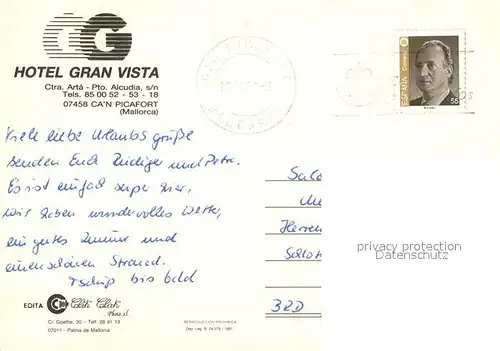 HOTEL GRAN VISTA
Ctra. Artá - Pto. Alcudia, s/n
Tels. 85 00 52 - 53 - 18
07458 CA'N PICAFORT
(Mallorca)
ESPAÑA
Correos
55
Viele liebe Urlaubsgrüße
senden Euch Rüdiger und Petra.
Es ist einfach super hier,
wir haben wundervolles Wetter,
ein gutes Zimmer und
einen schönen Strand.
Tschüß bis bald
Herren
Schloß
BRD
privacy protection
Datenschutz
EDITA
Click Clack
C/. Goethe, 30 - Telf. 28 91 13
07011 - Palma de Mallorca
REPRODUCCION PROHIBIDA